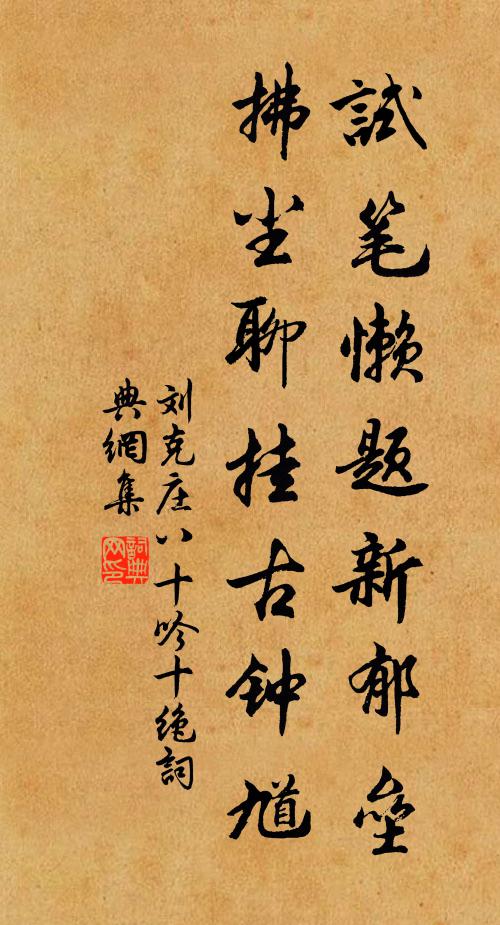 試笔懒题新郁壘
拂尘聊挂古钟馗
刘克庄八十吟十绝詞
典網集
詞典网印